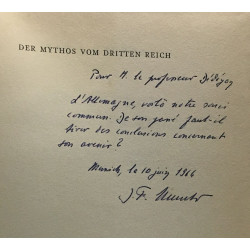 DER MYTHOS VOM DRITTEN REICH
Pour M. le professeur
L'Allemagne, voilà notre souci
commun. De son passé faut-il
tirer des conclusions concernant
son avenir?
Munich, le 10 juin 1966
J F.